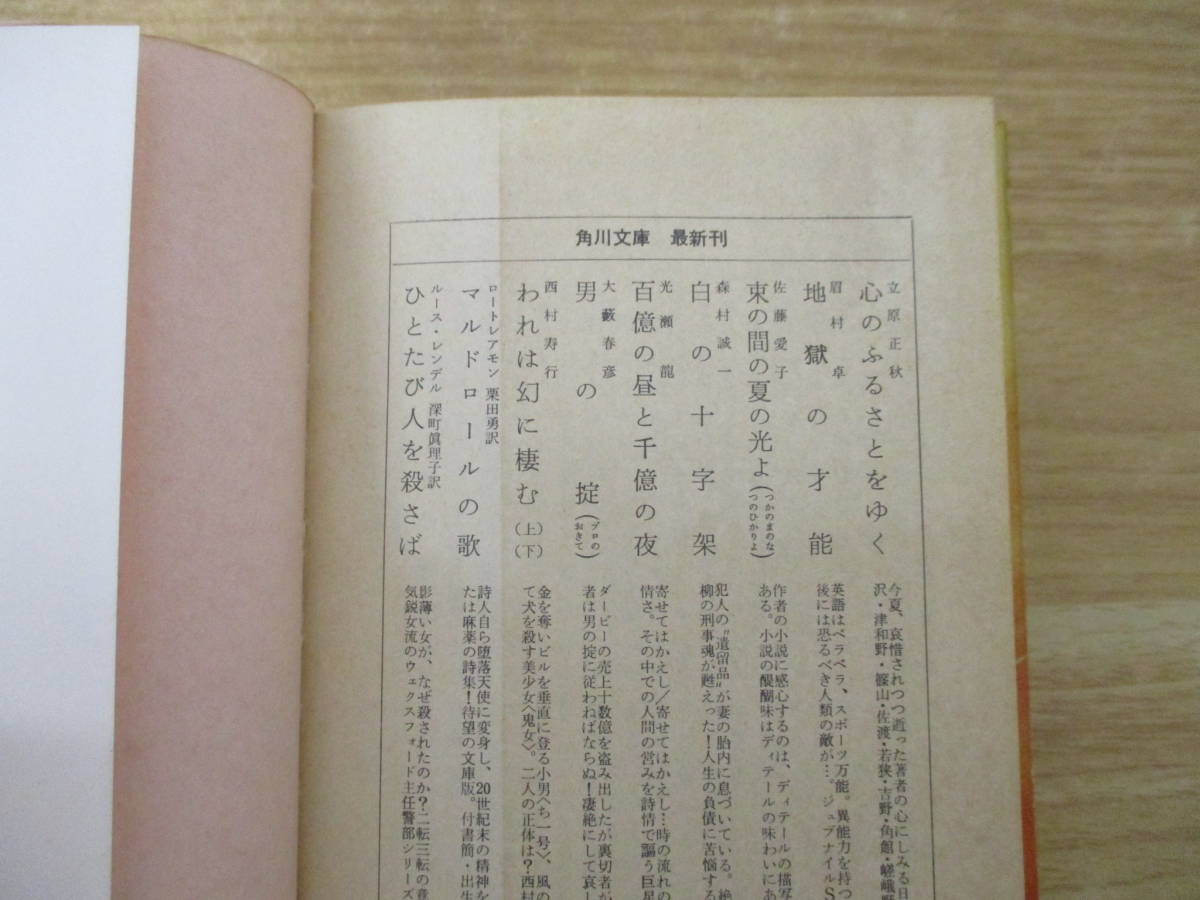 角川文庫　最新刊
立原正秋
心のふるさとをゆく
今夏、哀惜されつつ逝った著者の心にしみる日
沢・津和野・篠山・佐渡・若狭・吉野・角館・嵯峨野
眉村卓
地獄の才能
英語はペラペラ、スポーツ万能。異能力を持つ
後には恐るべき人類の敵が…。ジュブナイルS
佐藤愛子
束の間の夏の光よ(つかのまのなつのひかりよ)
作者の小説に感心するのは、ディテールの描写
ある。小説の醍醐味はディテールの味わいにあ
森村誠一
白の十字架
犯人の〝遺留品〟が妻の胎内に息づいている。絶
柳の刑事魂が甦えった！人生の負債に苦悩する
光瀬龍
百億の昼と千億の夜
寄せてはかえし／寄せてはかえし…時の流れの
情さ。その中での人間の営みを詩情で謳う巨星
大藪春彦
男の掟(プロのおきて)
ダービーの売上十数億を盗み出したが裏切者が
者は男の掟に従わねばならぬ！凄絶にして哀し
西村寿行
われは幻に棲む(上)(下)
金を奪いビルを垂直に登る小男〈ち一号〉、風の
て犬を殺す美少女〈鬼女〉。二人の正体は？西村
ロートレアモン 栗田勇訳
マルドロールの歌
詩人自ら堕落天使に変身し、20世紀末の精神を
たは麻薬の詩集！待望の文庫版。付書簡・出生
ルース・レンデル 深町眞理子訳
ひとたび人を殺さば
影薄い女が、なぜ殺されたのか？二転三転の意
気鋭女流のウェクスフォード主任警部シリーズ